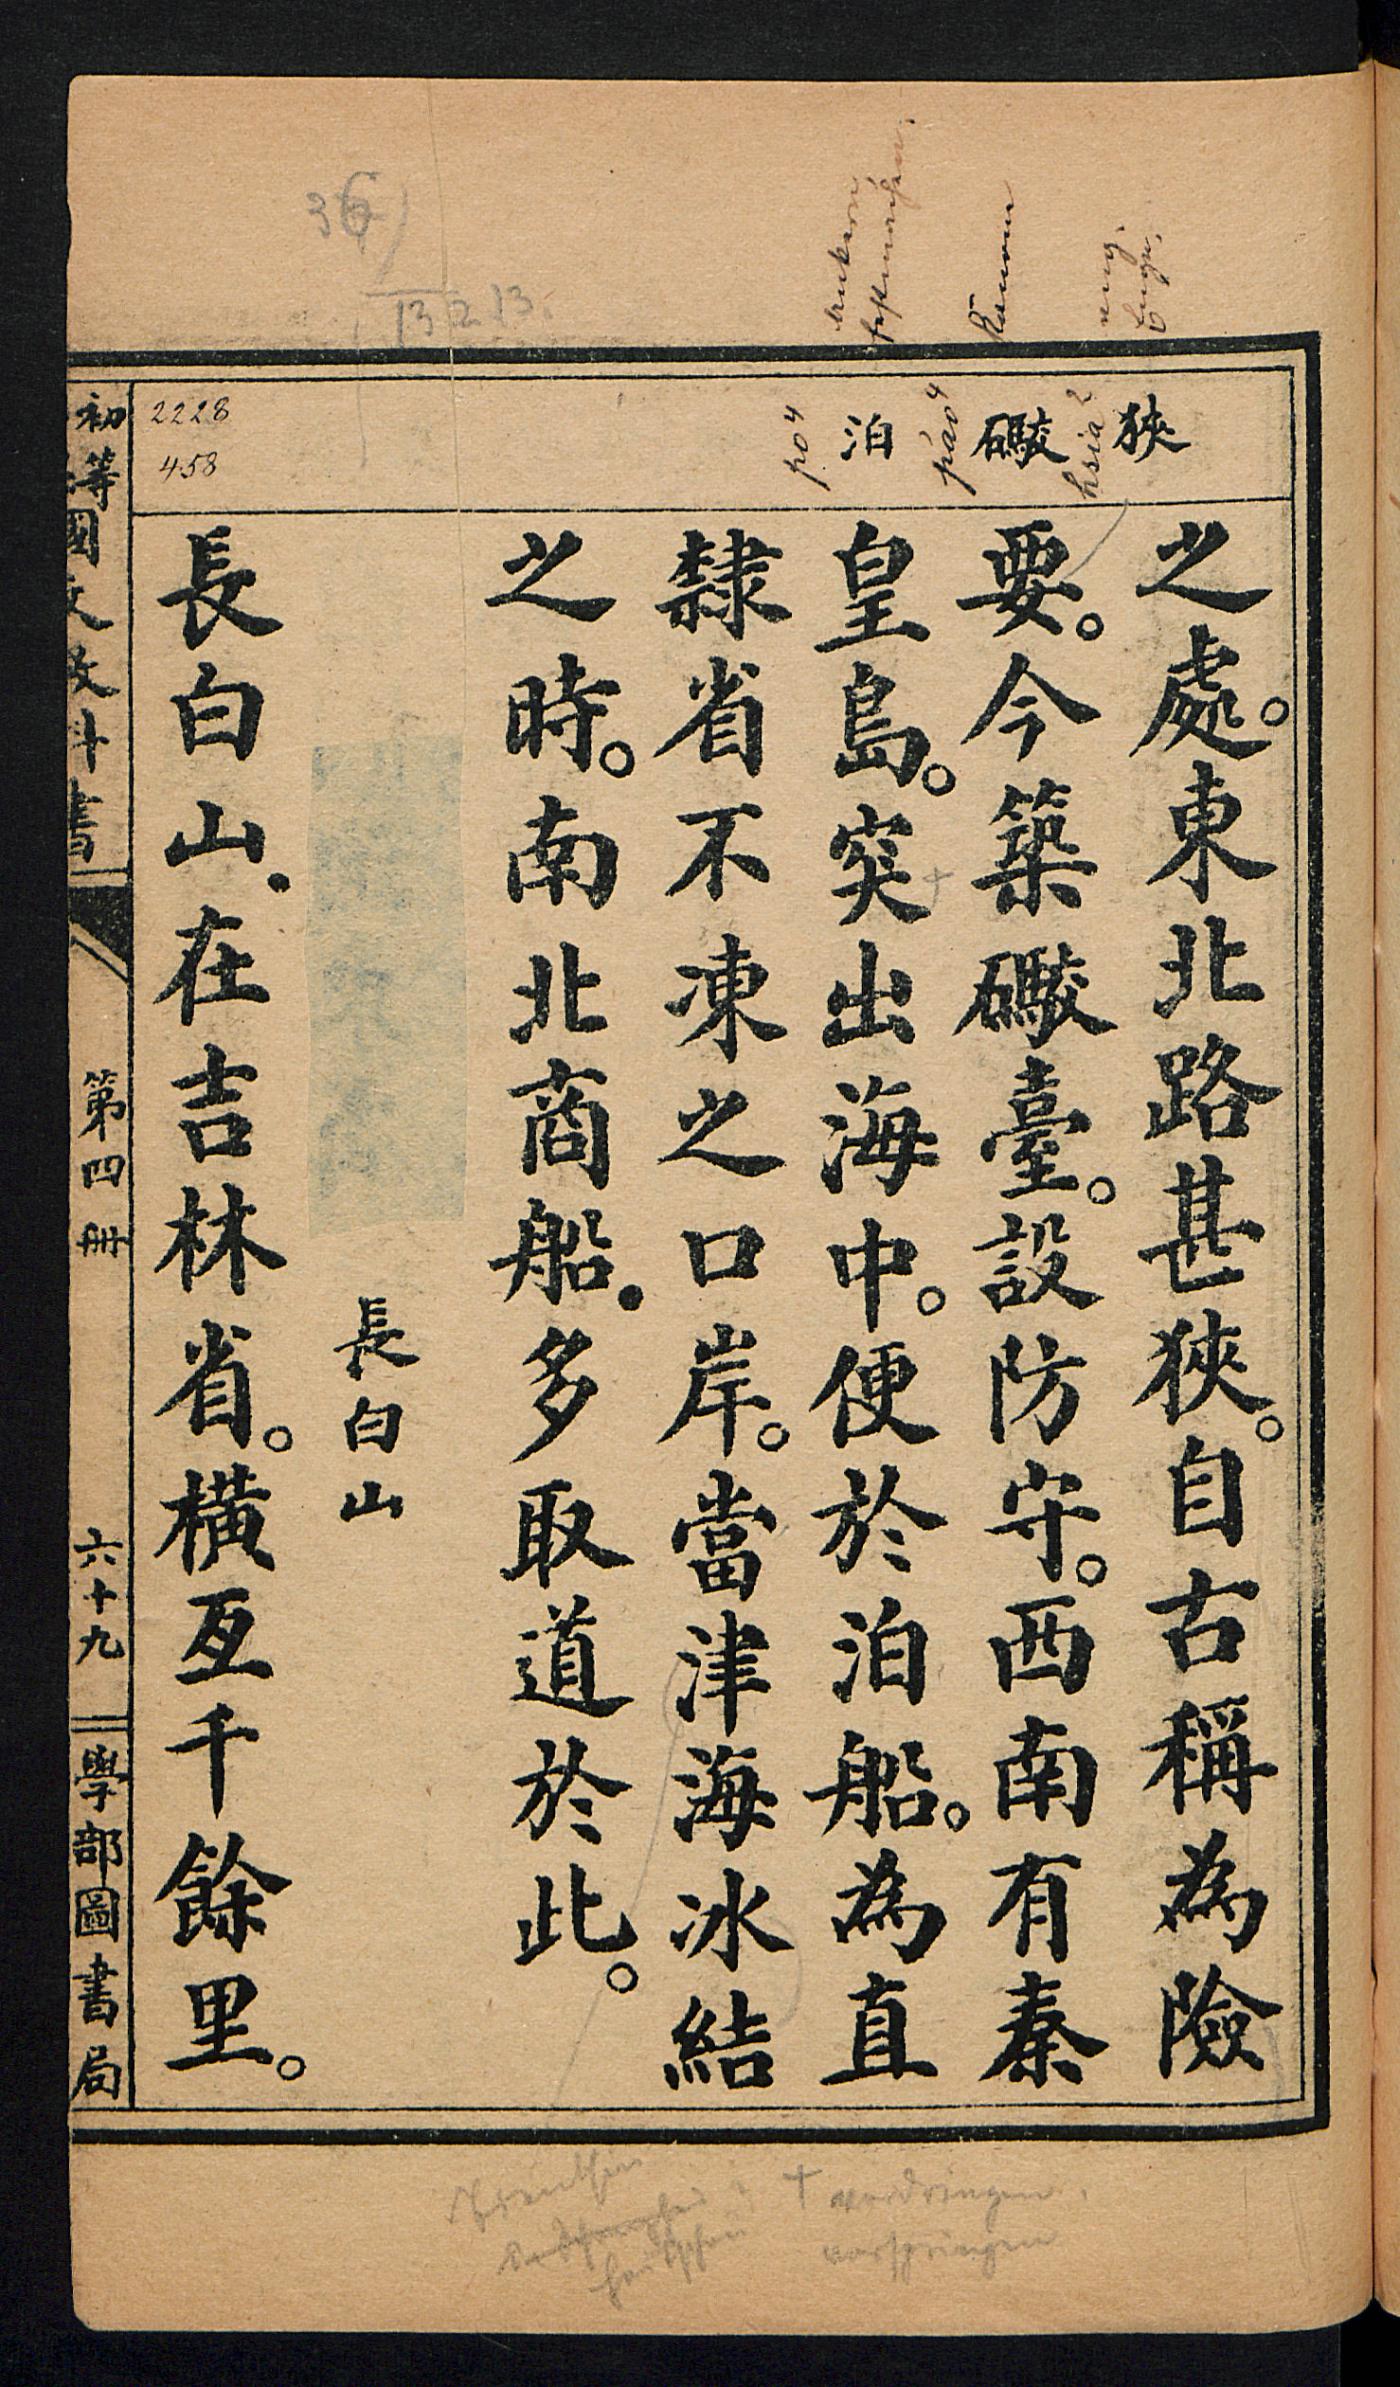 狹
礮
泊
hsia2
p'ao4
po4
Kanone
eng.
ankern
festmachen.
36
13 2 13.
2228
458
之處。東北路甚狹。自古稱為險
要。今築礮臺。設防守。西南有秦
皇島。突出海中。便於泊船。為直
隸省不凍之口岸。當津海冰結
之時。南北商船.多取道於此。
長白山
長白山.在吉林省。橫亙千餘里。
初等國文教科書
第四冊
六十九
學部圖書局
+ vordringen.
vorspringen